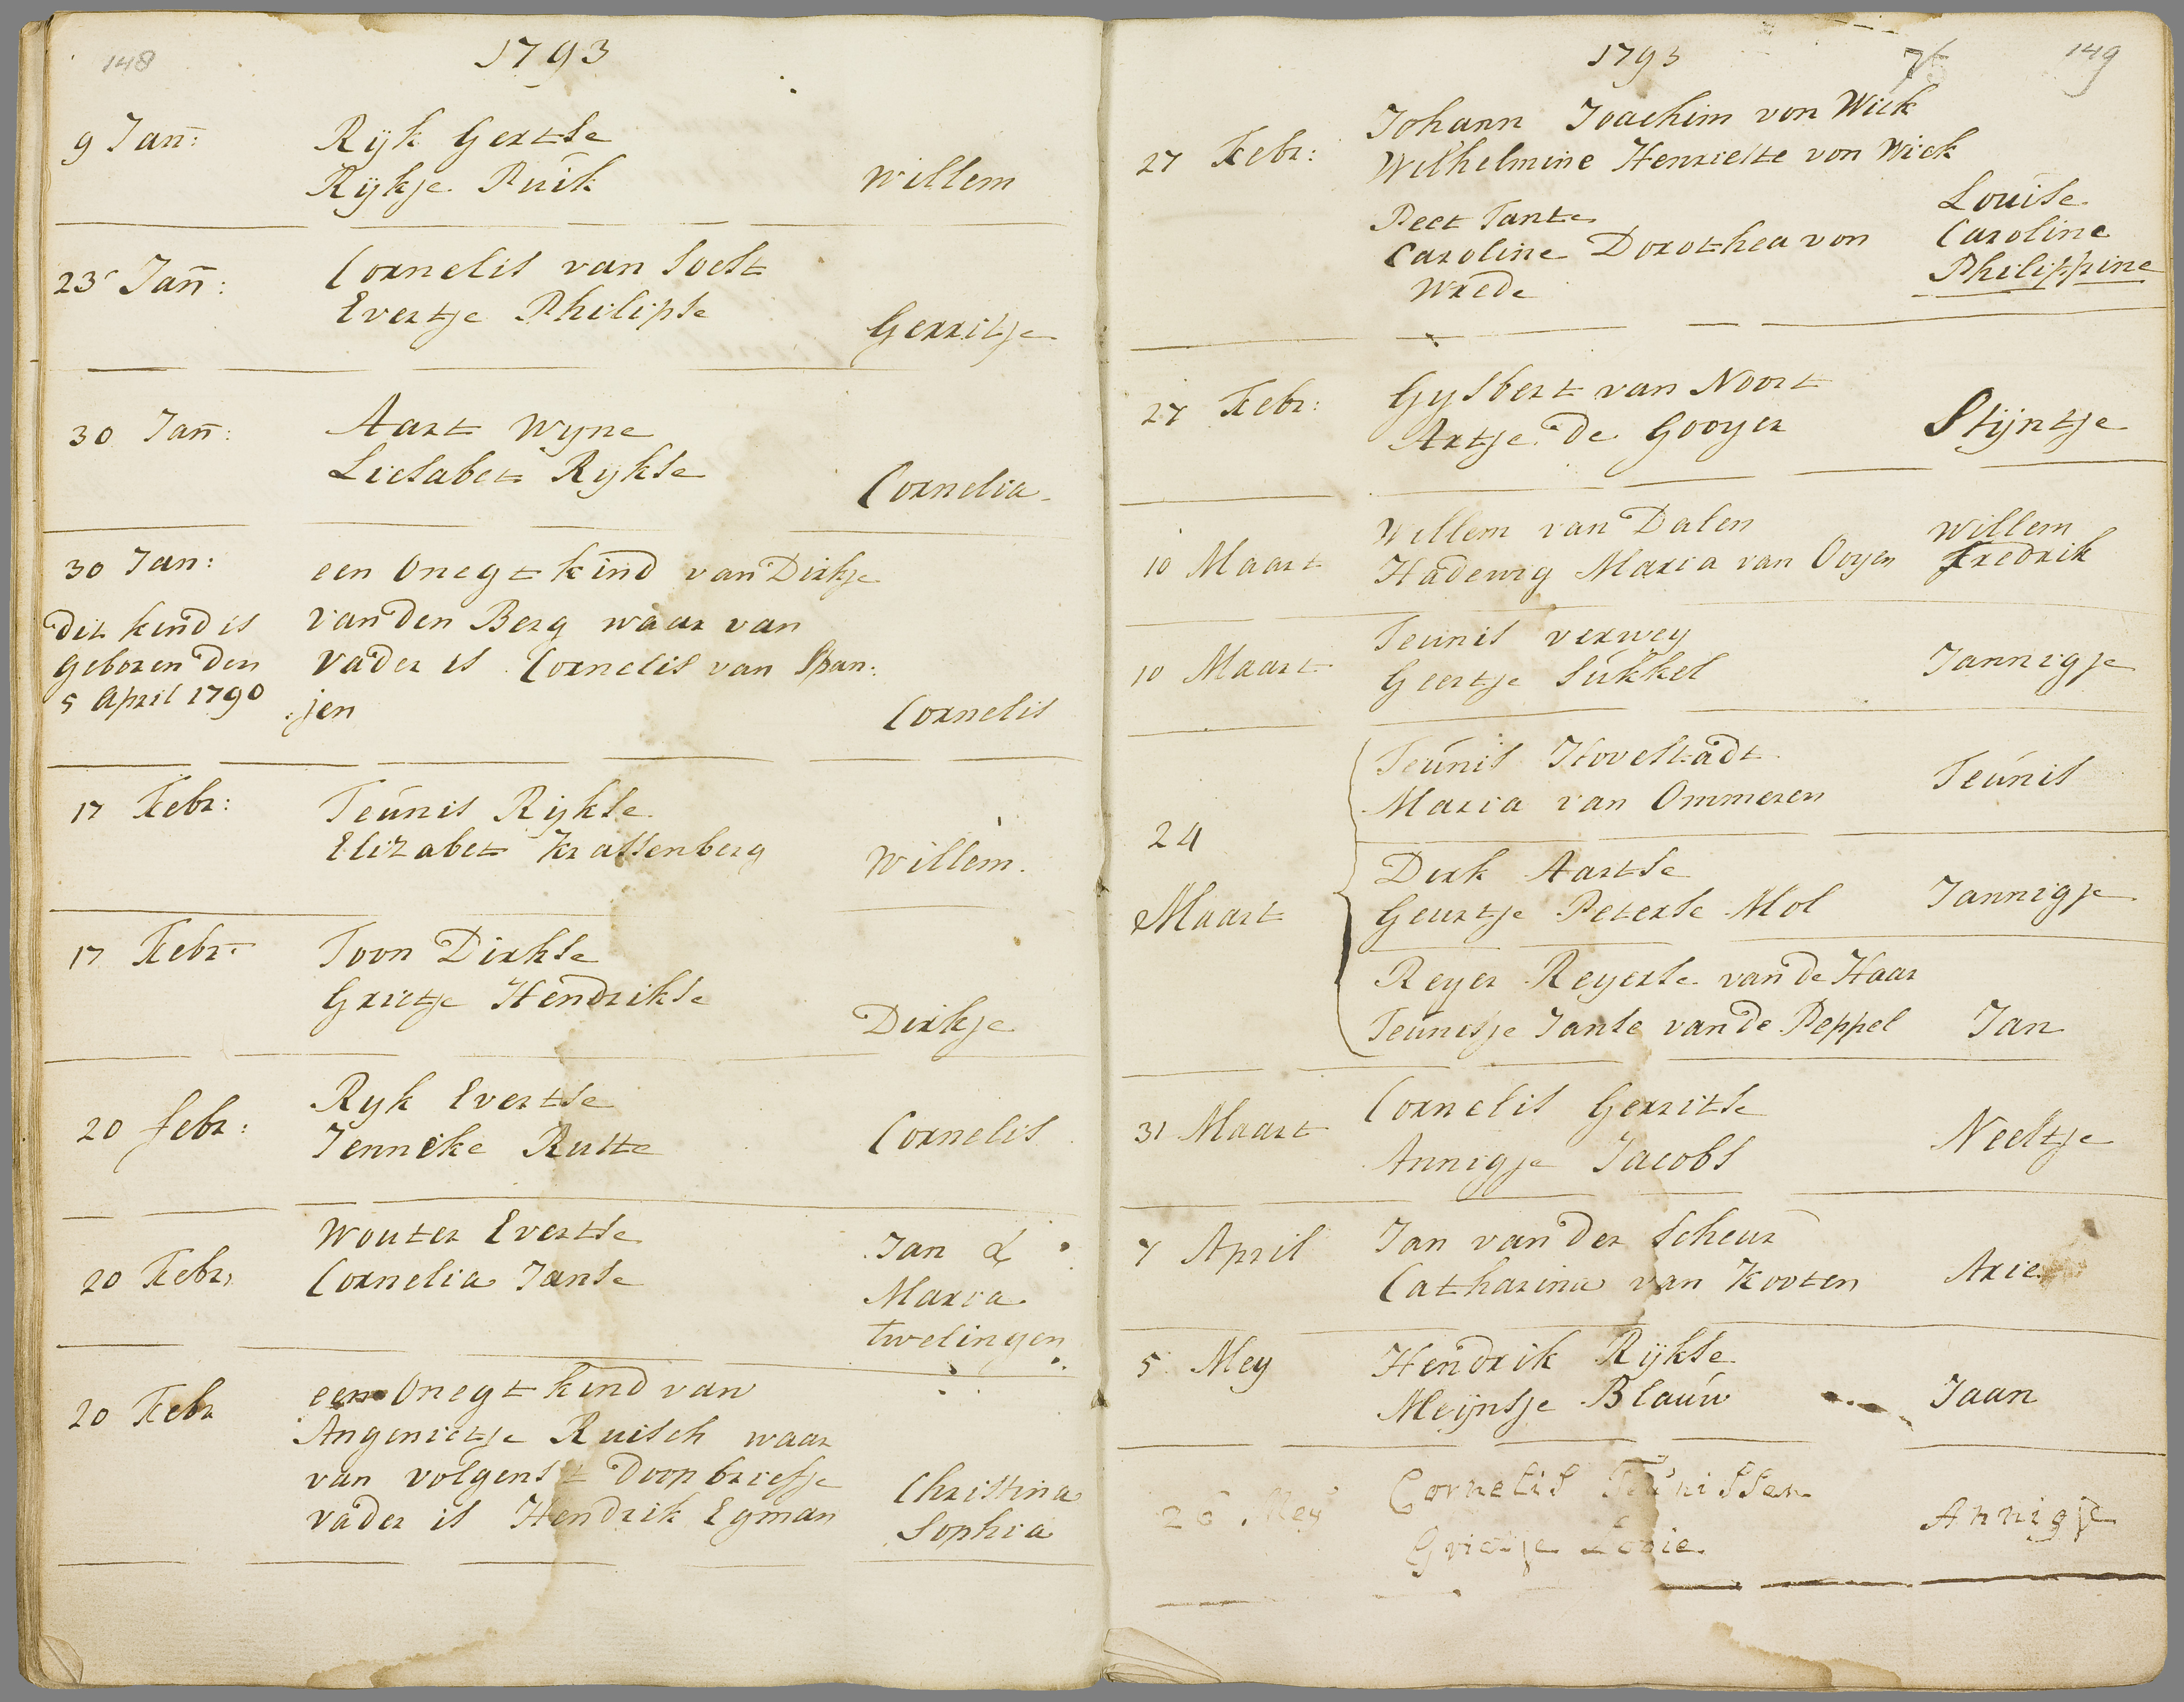 148
1793
9 Jan:
Ryk Gertse
Rykje Puik
Willem
23 Jan:
Cornelis van Soest
Evertje Philipse
Gerritje
30 Jan:
Aart Wyne
Liesabet Rykse
Cornelia
30 Jan:
een Onegt kind van Dirkje
van den Berg waar van
vader is Cornelis van Span:
:jen
Cornelis
Dit kind is
geboren den
5 April 1790
17 Febr:
Teunis Rykse
Elizabet Krassenberg
Willem.
17 Febr:
Toon Dirkse
Grietje Hendrikse
Dirkje
20 febr:
Ryk Evertse
Jenneke Rutte
Cornelis
20 Febr,
Wouter Evertse
Cornelia Janse
Jan &
Maria
twelingen
20 Febr
een Onegt kind van
Angenietje Ruisch waar
van volgens t Doopbriefje
vader is Hendrik Egman
Christina
Sophia
1793
149
27 Febr:
Johann Joachim von Wick
Wilhelmine Henriette von Wick
Peet Tante
Caroline Dorothea von
Wrede
Louise
Caroline
Philippine
27 Febr:
Gysbert van Noort
Artje de Gooyer
Stijntje
10 Maart
Willem van Dalen
Hadewig Maria van Ooyen
Willem
Fredrik
10 Maart
Teunis verwey
Geertje Sukkel
Jannigje
24
Maart
Teunis Hovestadt
Maria van Ommeren
Teunis
Dirk Aartse
Geurtje Peterse Mol
Jannigje
Reyer Reyerse van de Haar
Teunisje Janse van de Peppel
Jan
31 Maart
Cornelis Gerritse
Annigje Jacobs
Neeltje
7 April
Jan van der Scheur
Catharina van Kooten
Arie
5 Mey
Hendrik Rijkse
Meijnsje Blauw
Jaan
26 Mey
Cornelis Teunissen
Grietje
Annigje